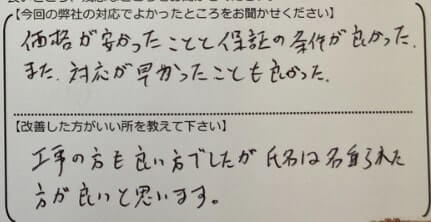 【今回の弊社の対応でよかったところをお聞かせください】
価格が安かったことと保証の条件が良かった.
また、対応が早かったことも良かった.
【改善した方がいい所を教えて下さい】
工事の方も良い方でしたが氏名は名乗られた
方が良いと思います。